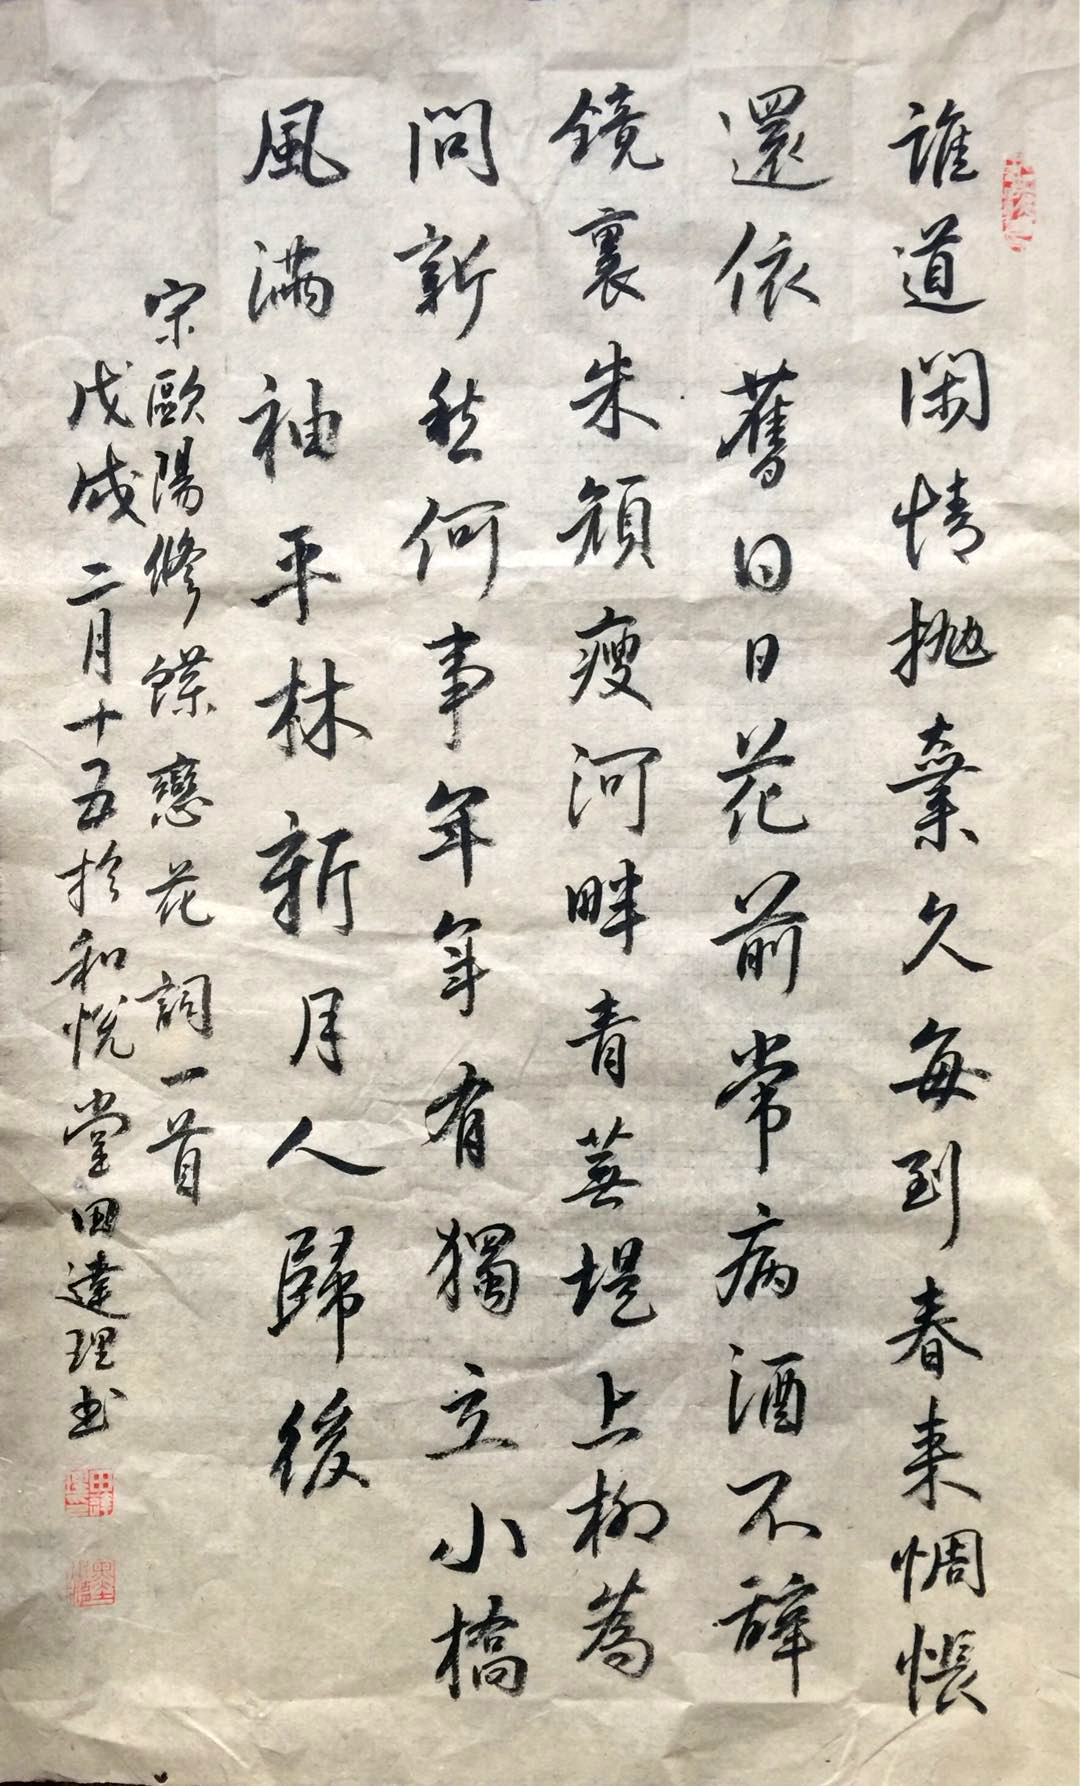 誰道閑情抛棄久每到春来惆悵
還依舊日日花前常病酒不辭
鏡裏朱顔瘦河畔青蕪堤上柳為
問新愁何事年年有獨立小橋
風滿袖平林新月人歸後
宋歐陽修蝶戀花詞一首
戊戌二月十五於和悅堂田達理书